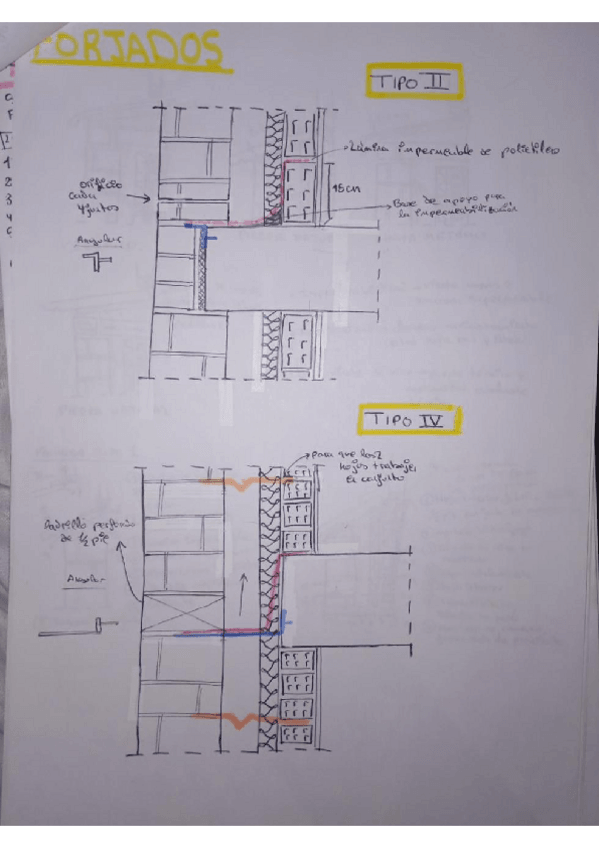 FORJADOS
TIPO II
Lámina impermeable de polietileno
orificio
cada
4 juntos
15cm
Base de apoyo para
la impermeabilización
Angular
TIPO IV
para que las 2
hojas trabajen
en conjunto
Ladrillo perforado
de ½ pie
Angular